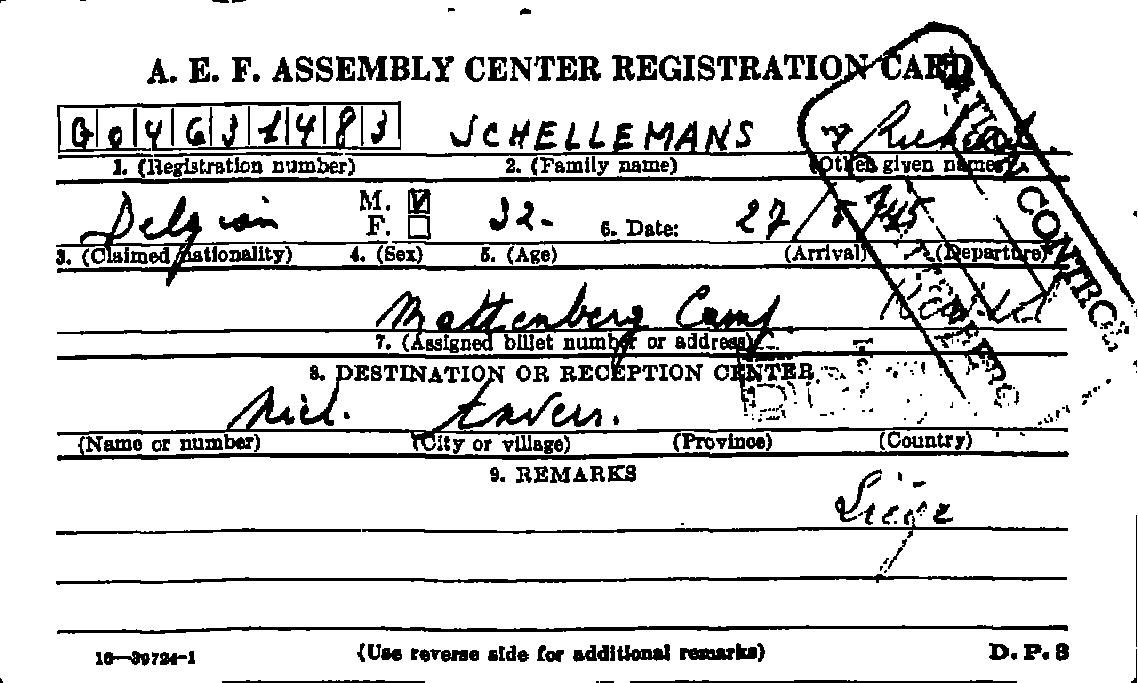 A. E. F. ASSEMBLY CENTER REGISTRATION CARD
G04631483 SCHELLEMANS Richard.
1. (Registration number) 2. (Family name) (Other given names)
Belgian M. F. 32- 6. Date: 27/5/45
3. (Claimed nationality) 4. (Sex) 5. (Age) (Arrival) (Departure)
Mattenberg Camp.
7. (Assigned billet number or address)
8. DESTINATION OR RECEPTION CENTER
Anvers.
(Name or number) (City or village) (Province) (Country)
9. REMARKS
Liége
16—39724-1 (Use reverse side for additional remarks) D. P. 8
CONTROL